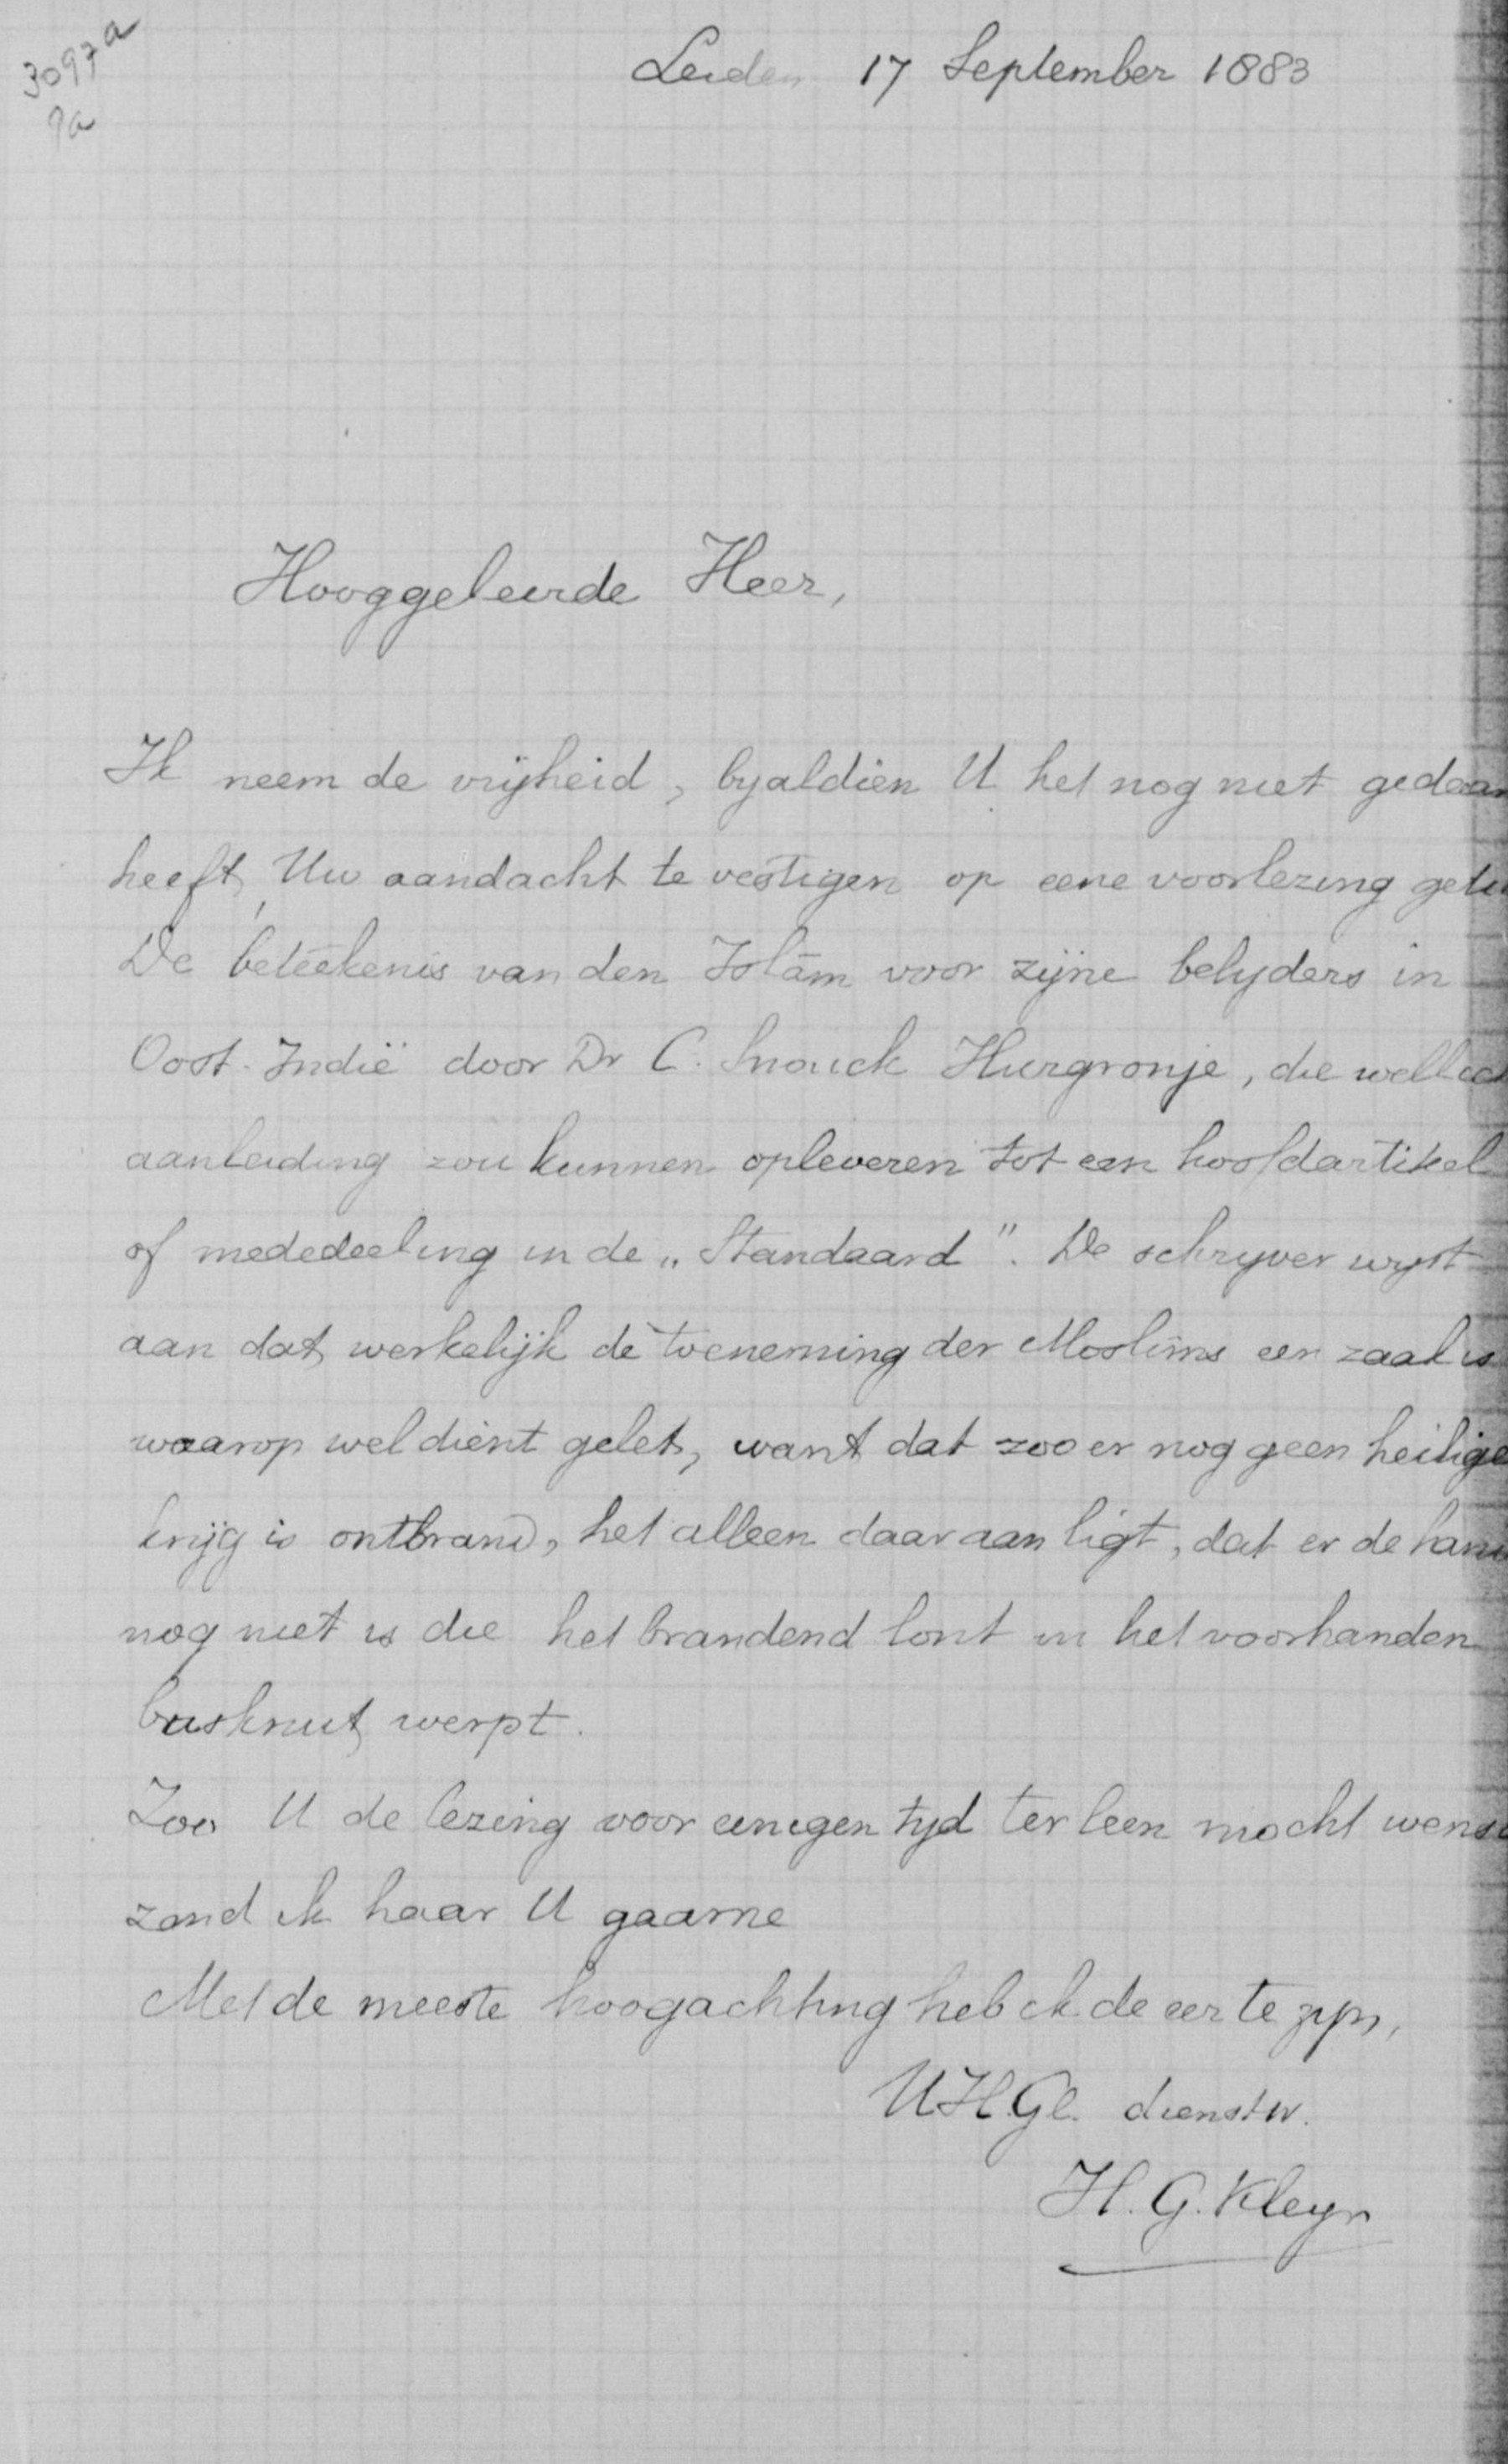 3097a
9a
Leiden 17 September 1883
Hooggeleerde Heer,
Ik neem de vrijheid, byaldien U het nog niet gedaan
heeft, Uw aandacht te vestigen op eene voorlezing
De beteekenis van den Islâm voor zijne belyders in
Oost-Indië door Dr C. Snouck Hurgronje, die
aanleiding zou kunnen opleveren tot een hoofdartikel
of mededeeling in de „Standaard". De schryver wyst
aan dat werkelijk de toeneming der Moslims een zaak is
waarop wel dient gelet, want dat zoo er nog geen heilige
krijg is ontbrand, het alleen daaraan ligt, dat er de hand
nog niet is die het brandend lont in het voorhanden
buskruit werpt.
Zoo U de lezing voor eenigen tyd ter leen mocht
zend ik haar U gaarne
Met de meeste hoogachting heb ik de eer te zyn,
UH.Gel. dienstw.
H. G. Kleyn